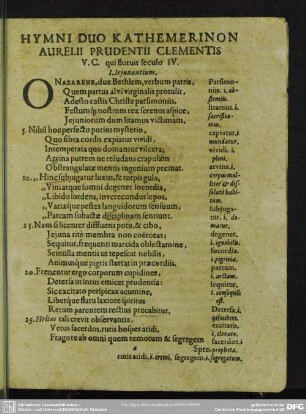 HYMNI DUO KATHEMERINON
AURELII PRUDENTII CLEMENTIS
V.C. qui floruit seculo IV.
I. Iejunantium.
O NAZARENE, dux Bethlem, verbum patris,
Quem partus alvi virginalis protulit,
Adesto castis Christe parsimoniis,
Festumq; nostrum rex serenus aspice,
Jejuniorum dum litamus victimam,
5. Nihil hoc profecto purius mysterio,
Quo fibra cordis expiatur vividi,
Intemperata quo domantur viscera,
Arvina putrem ne resudans crapulam
Obstrangulatæ mentis ingenium premat.
10. „Hinc subjugatur luxus, & turpis gula,
„Vini atque somni degener socordia,
„Libido sordens, inverecundus lepos,
„Variæque pestes languidorum sensuum,
„Parcam subactæ disciplinam sentiunt.
15. Nam si licenter diffluens potu, & cibo,
Jejuna rite membra non coërceas;
Sequitur, frequenti marcida oblectamine,
Scintilla mentis ut tepescat nobilis,
Animusque pigris stertat in præcordiis.
20. Frenentur ergo corporum cupidines,
Detersa ut intus emicet prudentia:
Sic excitato perspicax acumine,
Liberque flatu laxiore spiritus
Rerum parentem rectius precabitur.
25. Helias tali crevit observantia,
Vetus sacerdos, ruris hospes aridi,
Fragore ab omni quem remotum & segregem
Spre-
ruris aridi, i. eremi, segregem. i. segregatum.
Parsimo-
niis. i. ab-
stemiis.
litamus. i.
sacrifica-
mus.
expiatur, i
mundatur,
vividi. i.
pleni.
arvina, i.
subjuga-
tur, i. do-
matur,
degener,
i. ignobilis,
socordia.
i. pigritia.
parcam,
i. arctam.
sequitur,
i. consequens
est.
Detersa, i.
excitato,
i. elevato,
sacerdos,
i. propheta.